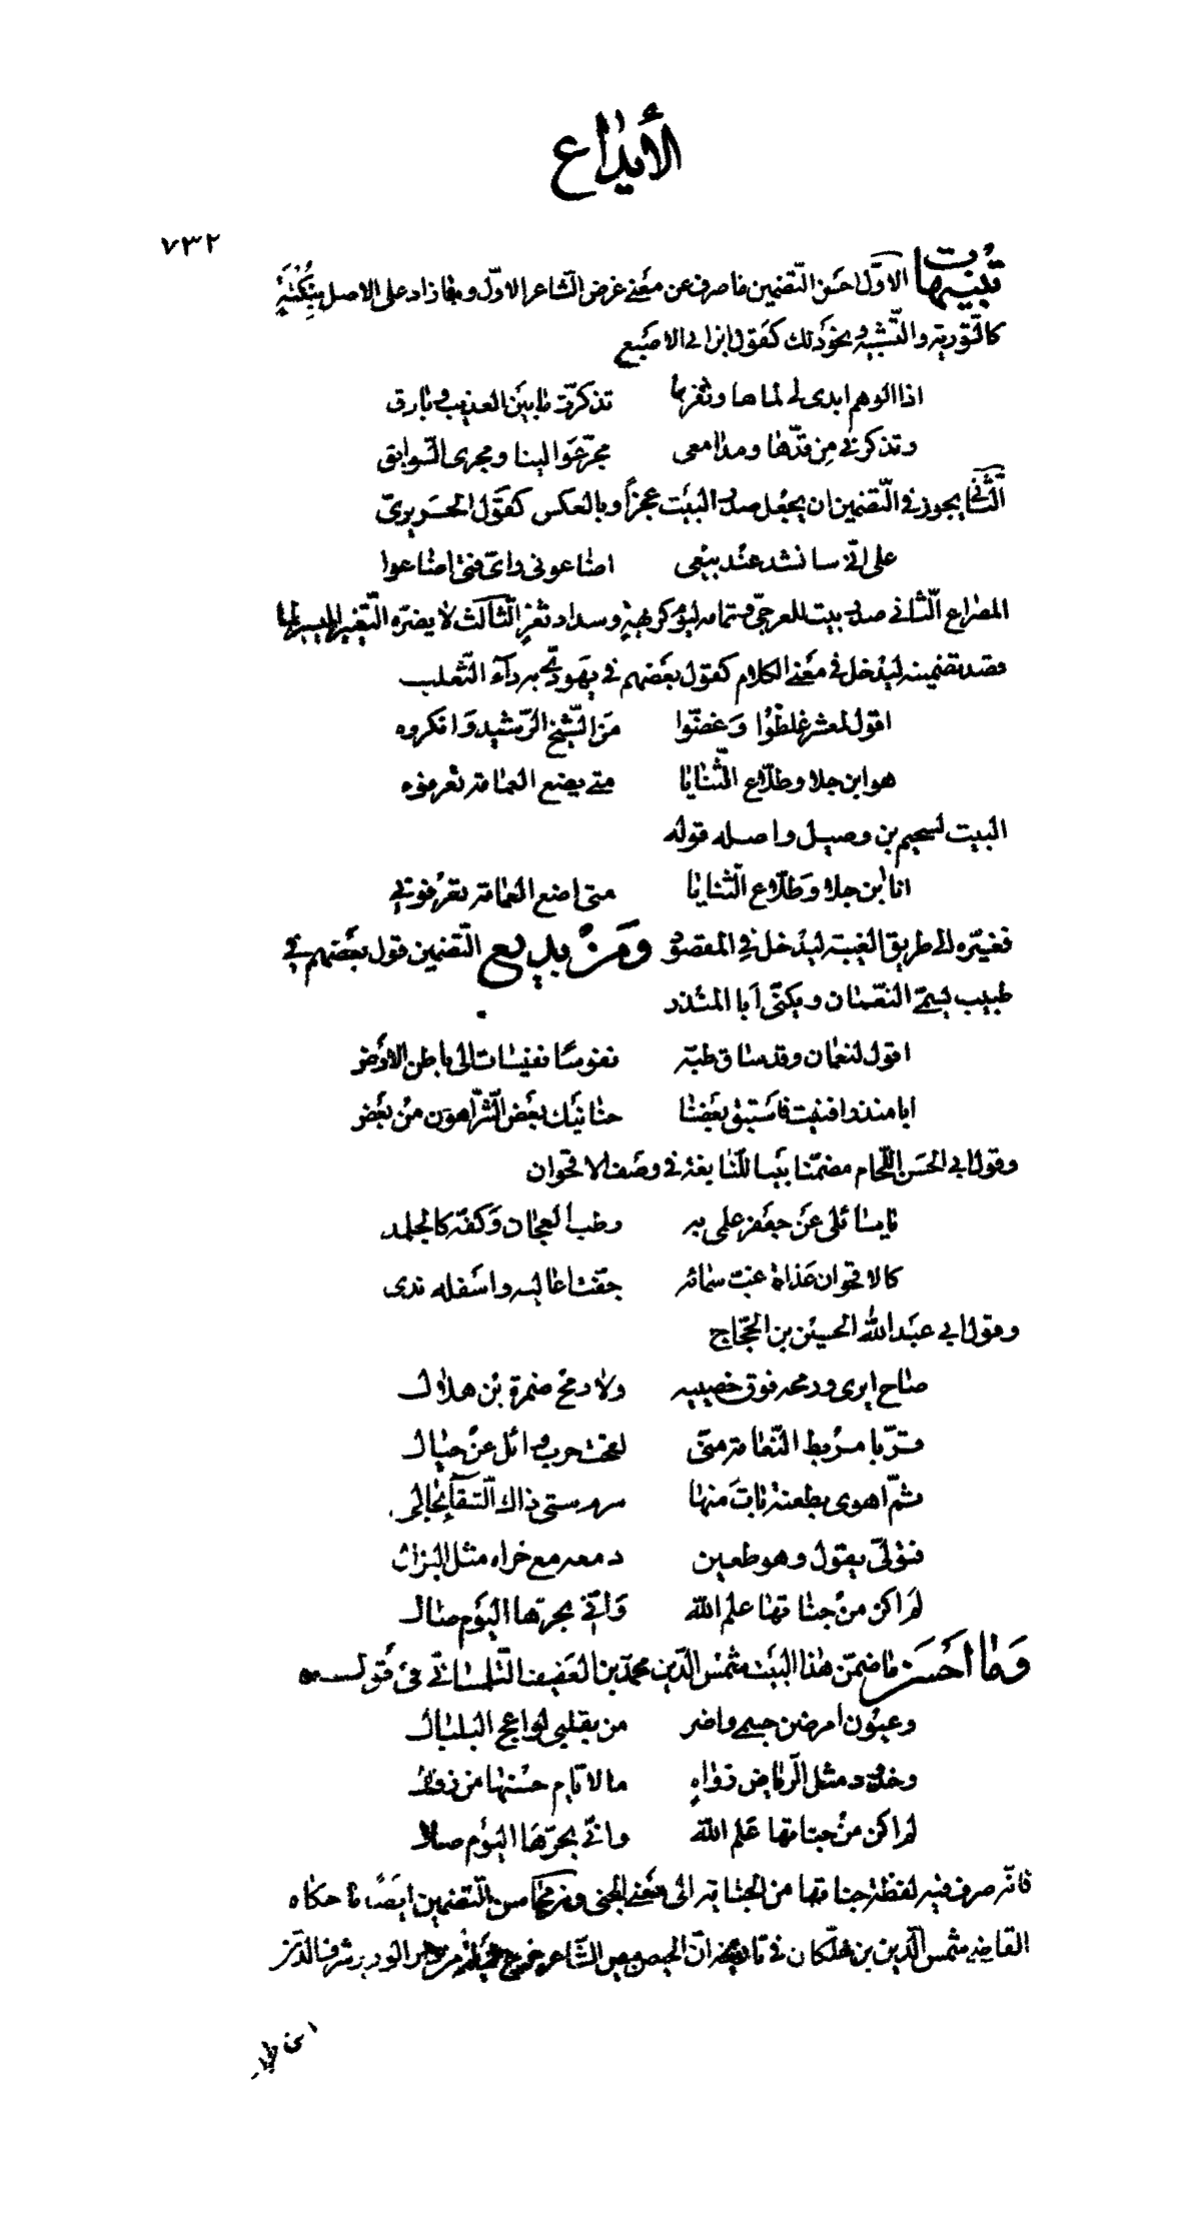 الأيداع
٧٣٢
تنبيهات الاوّل احسن التّضمين ما صرف عن معنى غرض الشّاعر الاوّل وما زاد على الاصل بنكتة
كالتّورية والتّشبيه ونحو ذلك كقول ابن ابى الاصبع
اذا الوهم ابدى لى لماها وثغرها تذكّرت ما بين العذيب وبارق
وتذكرنى من قدّها ومدامعى مجرّ عوالينا ومجرى السّوابق
الثّانى يجوز فى التّضمين ان يجعل صدر البيت عجزاً وبالعكس كقول الحريرىّ
على انّى سانشد عند بيعى اضاعونى واىّ فتى اضاعوا
المصراع الثّانى صدر بيت للعرجىّ وتمامه ليوم كريهة وسداد ثغر الثّالث لا يضرّه التّغيير اليسير لما
قصد تضمينه ليدخل فى معنى الكلام كقول بعضهم فى يهودىّ به داء الثّعلب
اقول لمعشر غلطوا وغضّوا من الشّيخ الرّشيد وانكروه
هو ابن جلا وطلّاع الثّنايا متى يضع العمامة تعرفوه
البيت لسحيم بن وصيل واصله قوله
انا ابن جلا وطلّاع الثّنايا متى اضع العمامة تعرفونى
فغيّره الى طريق الغيبة ليدخل فى المقصود ومن بديع التّضمين قول بعضهم فى
طبيب يسمّى النّعمان ويكنّى ابا المنذر
اقول لنعمان وقد ساق طبّه نفوسًا نفيسات الى باطن الارض
ابا منذر افنيت فاستبق بعضنا حنانيك بعض الشّرّ اهون من بعض
وقول ابى الحسن اللّحام مضمّنا بيت النّابغة فى وصف الاقحوان
يا سائلى عن جعفر علمى به رطب العجان وكفّه كالجلمد
كالاقحوان غداة غبّ سمائه جفّت اعاليه واسفله ندى
وقول ابى عبد الله الحسين بن الحجّاج
صاح ايرى ورمحه فوق خصييه ولا رمح ضمرة بن هلال
قرّبا مربط النّعامة منّى لقحت حرب وائل عن حيال
ثمّ اهوى بطعنة ناب منها
فتولّى يقول وهو طعين دمعه مع خراه مثل
لم اكن من جناتها علم الله وانّى بحرّها اليوم صال
وما احسن ما ضمّن هذا البيت شمس الدّين محمّد بن العفيف التّلمسانىّ فى قوله
وعيون امرضن جسمى واضر من بقلبى لواعج البلبال
وخدود مثل الرّياض زواهٍ ما لايّام حسنها من زوال
لم اكن من جناتها علم الله وانّى بحرّها اليوم صال
فانّه صرف فيه لفظة جناتها من الجناية الى معنى الجنى ومن محاسن التّضمين ايضًا ما حكاه
القاضى شمس الدّين بن خلّكان فى تاريخه انّ الحيص بيص الشّاعر خرج ليلة من دار الوزير شرف الدّين